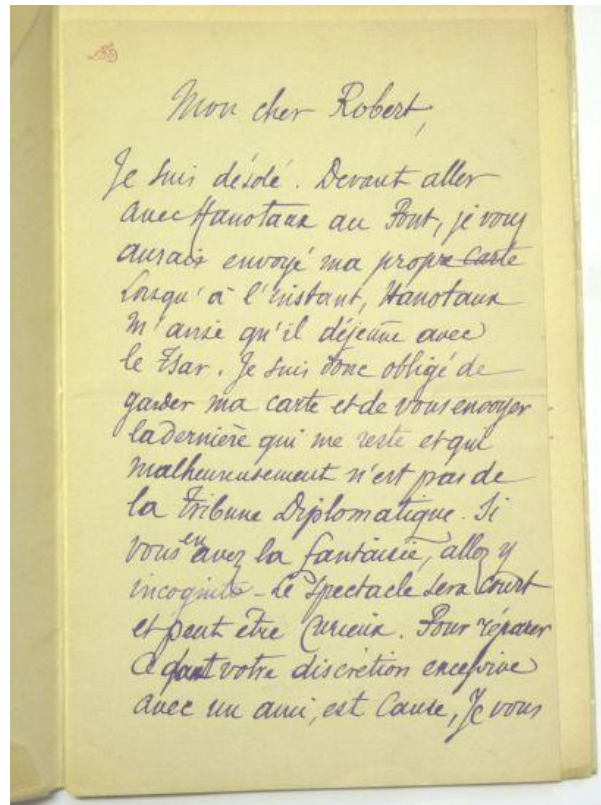 Mon cher Robert,
Je suis désolé. Devant aller
avec Hanotaux au Pont, je vous
aurais envoyé ma propre carte
lorsqu'à l'instant, Hanotaux
m'avise qu'il déjeune avec
le Tsar. Je suis donc obligé de
garder ma carte et de vous envoyer
la dernière qui me reste et qui
malheureusement n'est pas de
la Tribune Diplomatique. Si
vous en avez la fantaisie, allez y
incognito - Le spectacle sera court
et peut être curieux. Pour réparer
ce dont votre discrétion excessive
avec un ami, est cause, Je vous